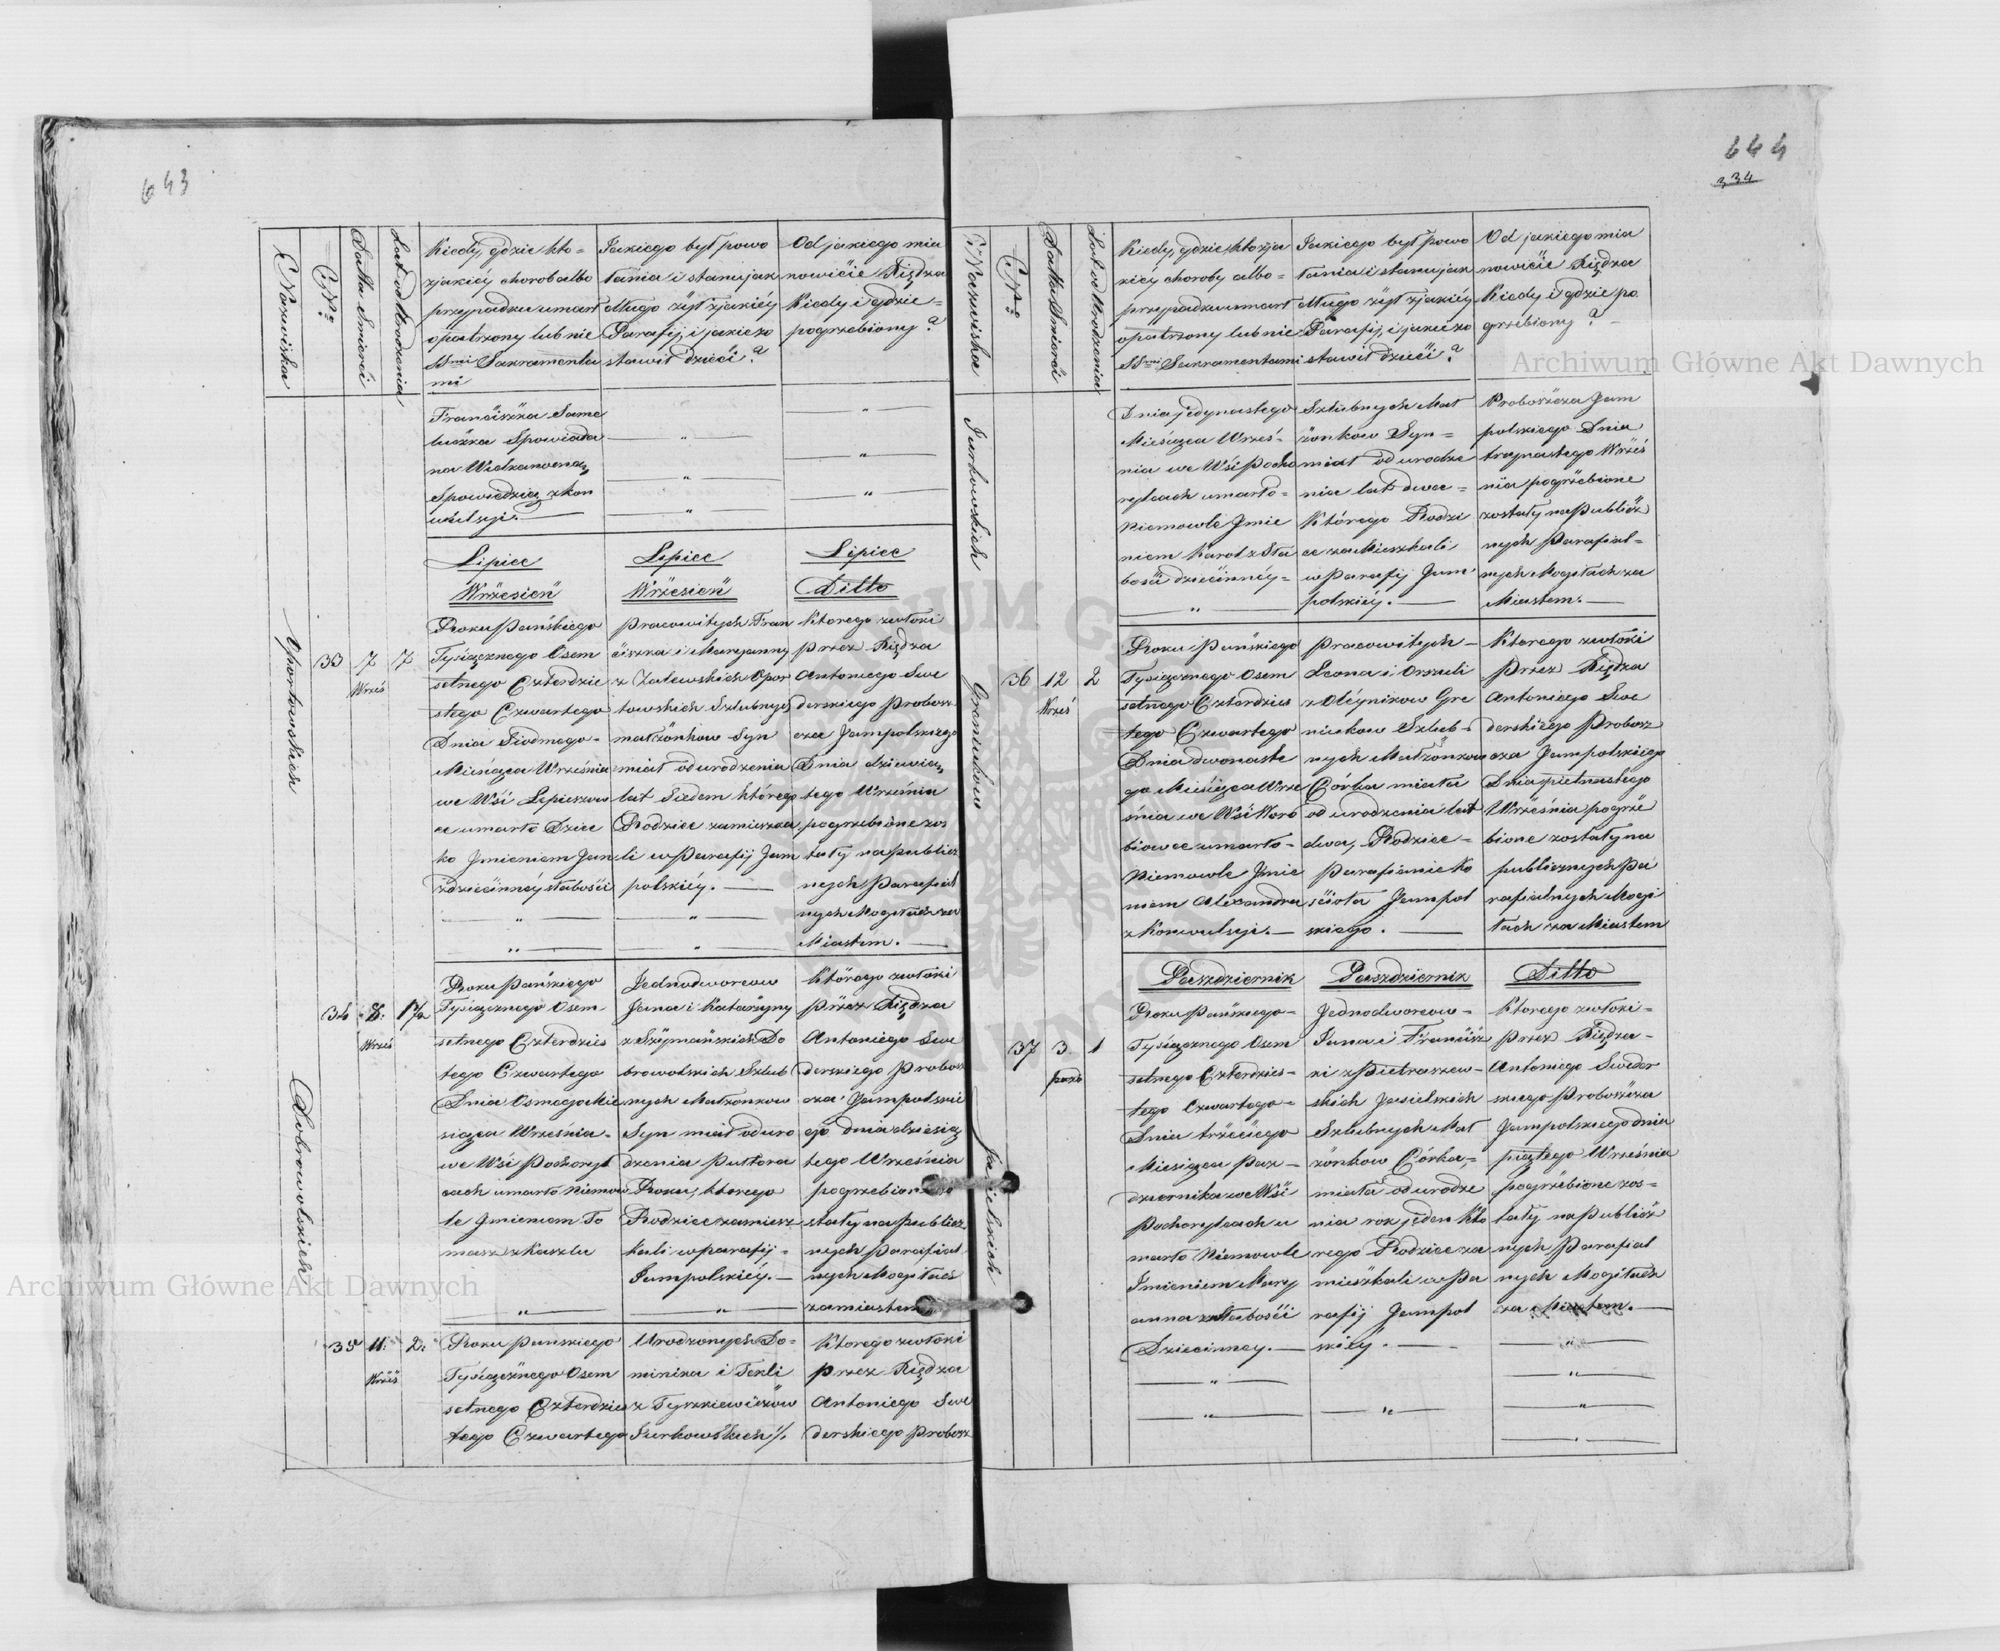 643
Nazwiska
Nro
Datta Smierci
Lat od Urodzenia
Kiedy, gdzie kto=
zjakiéy chorob albo
przypadku umart
opatrzony lub nie
SSmi Sakramenta
mi
Jakiego był powo
łania i stanu jak
długo żył zjakiéy
Parafij, i jakie zo
stawił dzieci?
Od jakiego mia
nowićie Xiędza
Kiedy i gdzie=
pogrzebiony?
Franciszka Same
Spowiada
Spowiedzią, zkon
wulsyi.
Lipiec
Wrzesień
Lipiec
Wrzesień
Lipiec
Ditto
Oportowskich
33
7
Wrześ
7
Roku Pańskiego
Tysiącznego Osem
setnego Czterdzie
stego Czwartego
Dnia Siodmego=
Miesiąca Września
we Wśi Lepieszow
ce umarło Dziec
ko Jmieniem Jan
zdziecinnéy słabości
Pracowitych Fran
ciszka i Maryanny
z Zalewskich Opor
towskich Szlubnych
małżonkow Syn
miał od urodzenia
lat Siedem którego
Rodzice zamieszka
li w Parafij Jam
polskiéy.
Ktorego zwłoki
przez Xiędza
Antoniego Swe
derskiego Probosz
cza Jampolskiego
Dnia dziewią
tego Września
pogrzebione zos
tały na publicz
nych Parafial
nych Mogiłach za
Miastem.
Dobrowolskich
34
8.
Wrześ
1½
Roku Pańskiego
Tysiącznego Osem
setnego Czterdzies
tego Czwartego
Dnia Osmego Mie
siąca Września=
we Wśi Pochorył
cach umarło Niemow
le Jmieniem To
masz z Kaszlu
Jednodworcow
Jana i Katarzyny
z Szymańskich Do
browolskich Szlub
nych Małżonkow
Syn miał od uro
dzenia Puttora
Roku, ktorego
Rodzice zamiesz
kali w parafij=
Jampolskiéy.
Którego zwłoki
przez Xiędza
Antoniego Swe
derskiego Probosz
cza Jampolski
ego dnia dziesią
tego Września
pogrzebione zo
stały na publicz
nych Parafial
nych Mogiłach
za miastem
35
11.
Wrześ
2.
Roku Pańskiego
Tysiącznego Osem
setnego Czterdzies
tego Czwartego
Urodzonych Do=
minika i Tekli
z Tyszkiewiczów
Jurkowskich %.
Ktorego zwłoki
przez Xiędza
Antoniego Swe
derskiego Probosz
644
334
Nazwiska
Nro
Datta Smierci
Lat od Urodzenia
Kiedy, gdzie, kto zja
kiéy choroby albo=
przypadku umart
opatrzony lub nie
SSmi Sakramentami
Jakiego był powo
łania i stanu jak
długo żył zjakiéy
Parafij, i jakie zo
stawił dzieci?
Od jakiego mia
nowićie Xiędza
Kiedy i gdzie po
grzebiony?
Jurkowskich
Dnia jedynastego
Miesiąca Wrześ=
nia we Wśi Pocho
ryłcach umarło=
Niemowle Jmie
niem Karol z Sła
bości dziecinnéy=
Szlubnych Mał
żonkow Syn=
miał od urodze
nia lat dwa=
Którego Rodzi
ce zamieszkali
w Parafij Jam
polskiéy.
Proboszcza Jam
polskiego Dnia
trzynastego Wrześ
nia pogrzebione
zostały na Publicz
nych Parafial=
nych Mogiłach za
Miastem.
Greniukow
36
12
Wrześ
2
Roku Pańskiego
Tysiącznego Osem
setnego Czterdzies
tego Czwartego
Dnia dwonaste
go Miesiąca Wrze
śnia we Wśi Woro
biowce umarło=
Niemowle Jmie
niem Alexandra
z Konwulsyi.
Pracowitych
Leona i Orszuli
z Oleynikow Gre
niukow Szlub=
nych Małżonkow
Córka miała
od urodzenia lat
dwa, Rodzice=
Parafianie Ko
ściota Jampol
skiego.
Ktorego zwłoki
Przez Xiędza
Antoniego Swe
derskiego Probosz
cza Jampolskiego
Dnia pietnastego
Września pogrze
bione zostały na
publicznych Pa
rafialnych Mogi
łach za Miastem
Pazdziernik
Pazdziernik
Ditto
Jasielskich
37
3.
pazd
1
Roku Pańskiego
Tysiącznego Osem
setnego Czterdzies=
tego Czwartego=
Dnia trzeciego
Miesiąca Paz=
dziernika we Wśi
Pochoryłcach u
marło Niemowle
Jmieniem Mary
anna z słabości
Dziecinney.
Jednodworcow=
Jana i Francisz
ki z Pietraszew=
skich Jasielskich
Szlubnych Mał
żonkow Córka,=
miała od urodze
nia rok jeden Kto
rego Rodzice za
mieszkali w Pa
rafij Jampol
skiéy.
Ktorego zwłoki=
przez Xiędza=
Antoniego Sweder
skiego Proboszcza
Jampolskiego dnia
piątego Września
pogrzebione zos=
tały na Publicz
nych Parafial
nych Mogiłach
za Miastem.
Archiwum Główne Akt Dawnych
Archiwum Główne Akt Dawnych